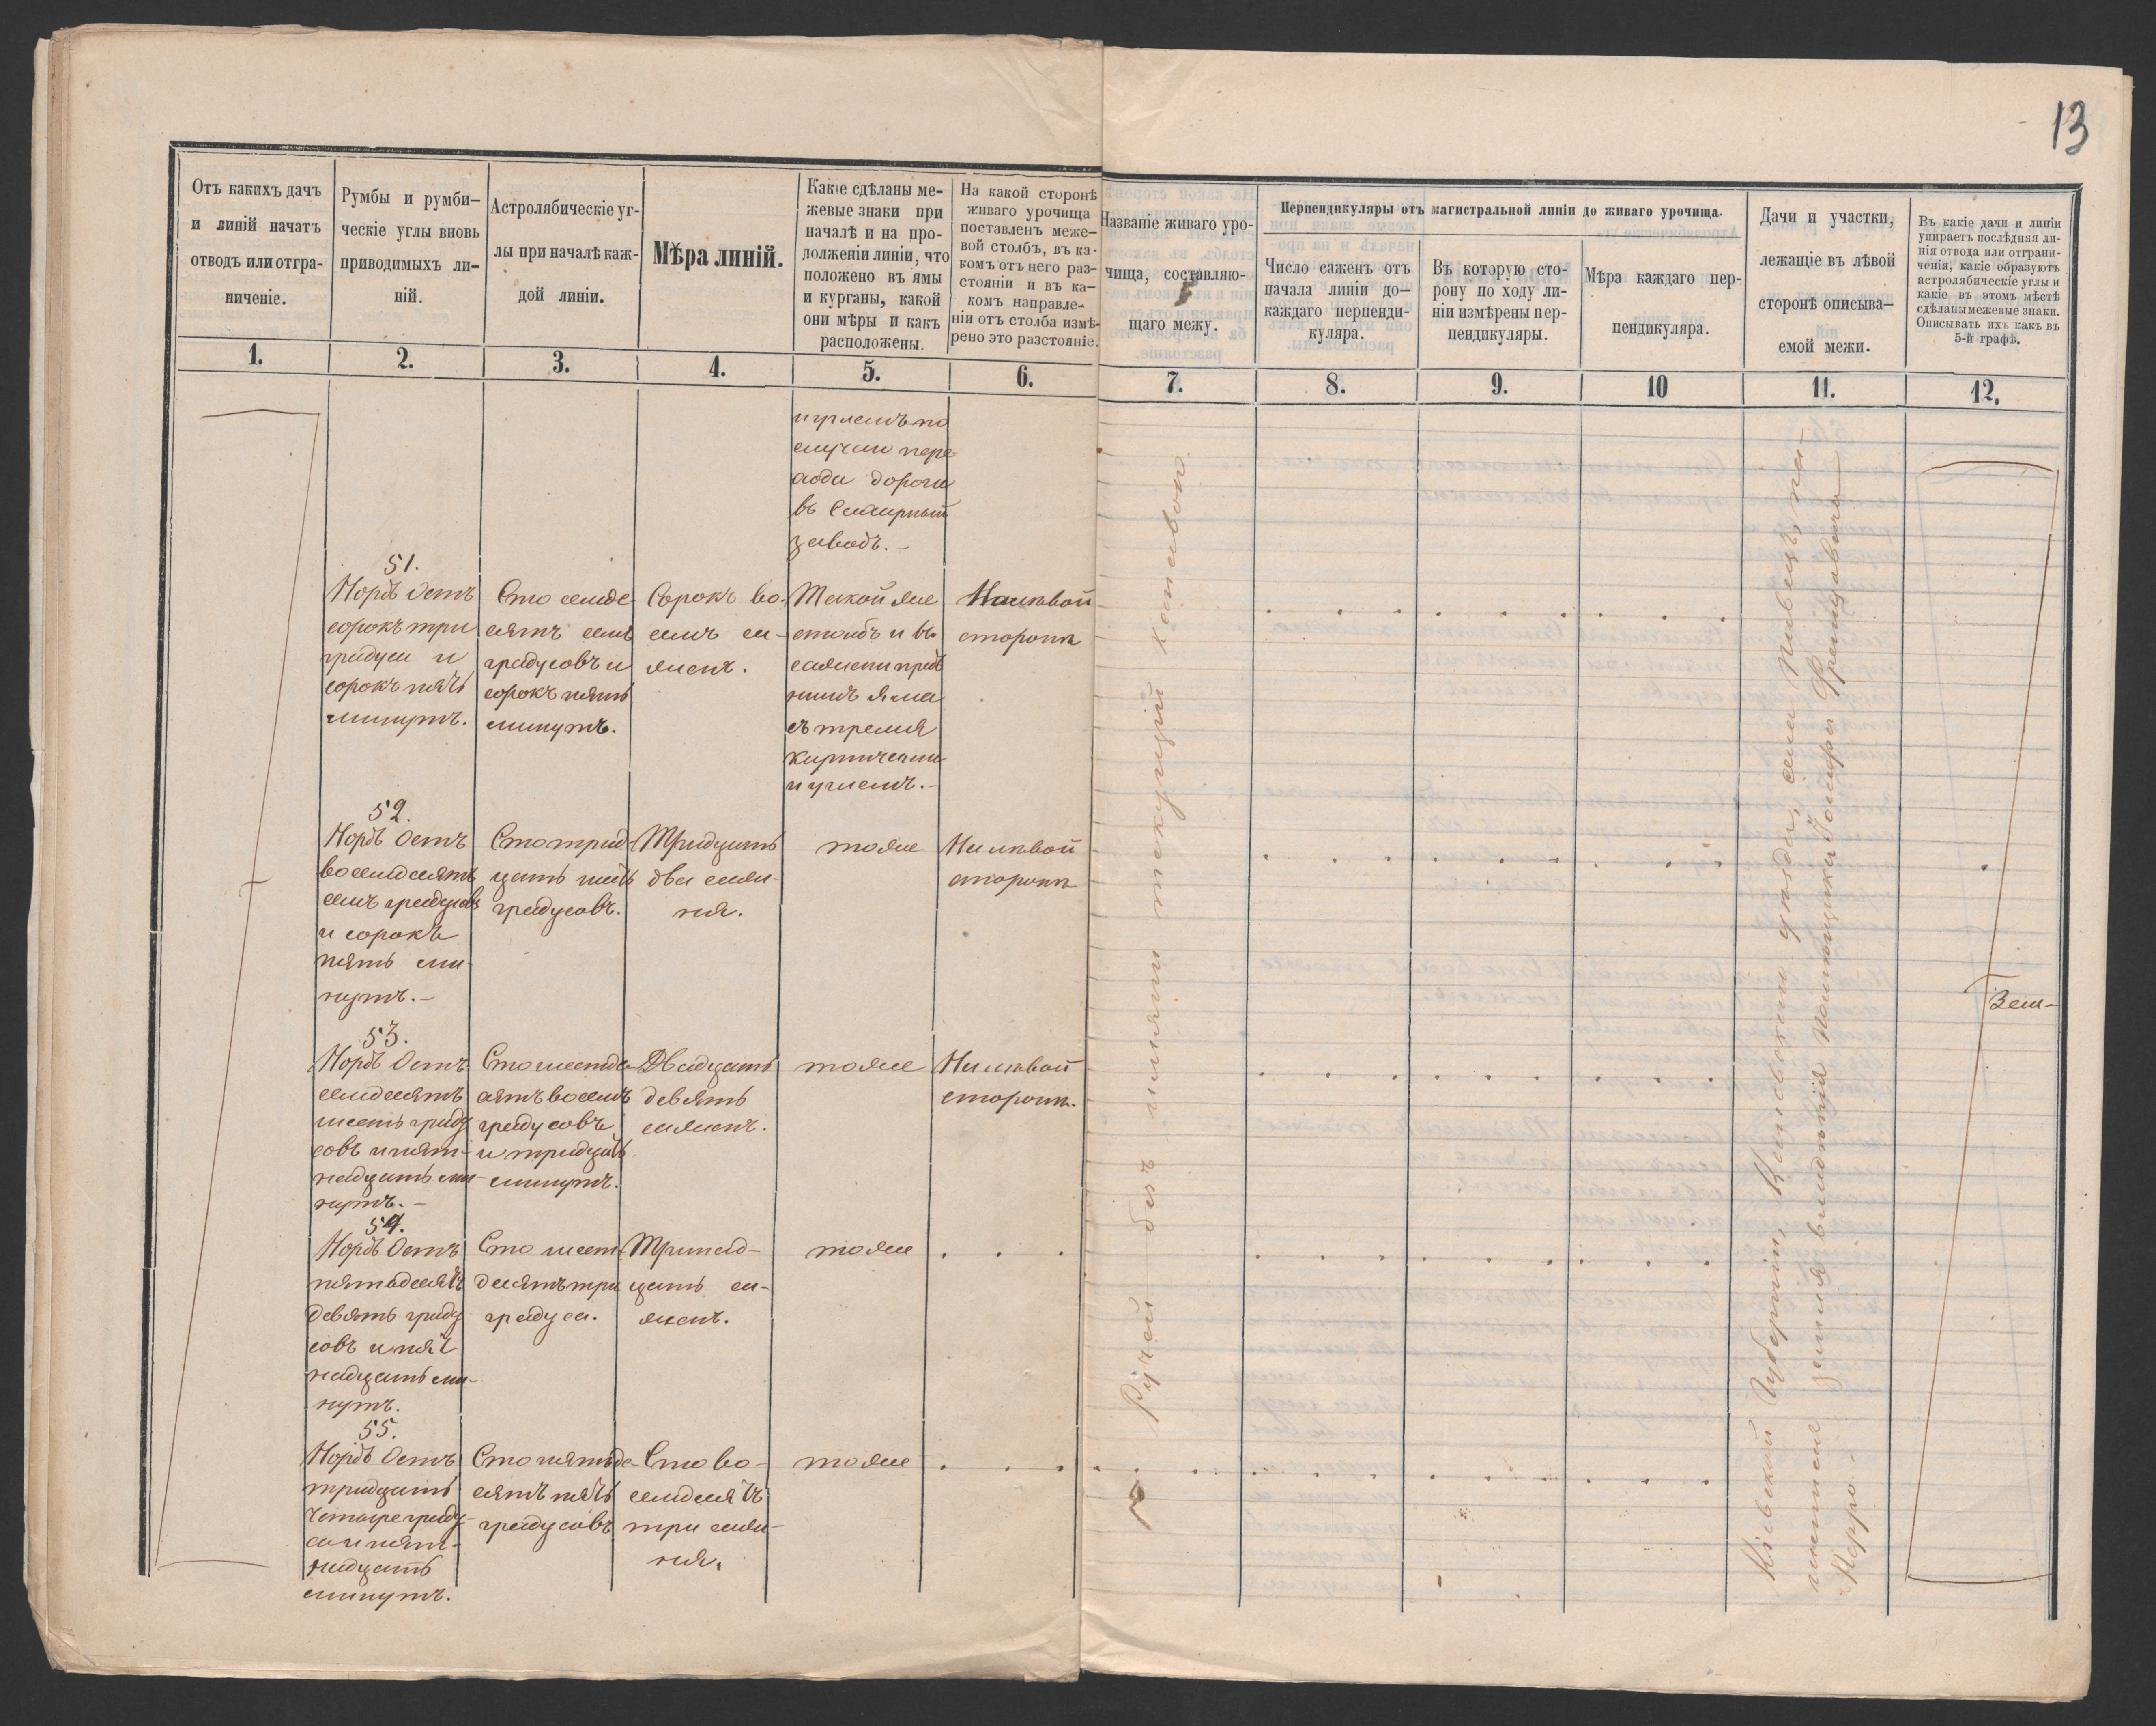 13
Отъ какихъ дачъ
и линій начатъ
отводъ или отгра-
ниченіе.
Румбы и румби-
ческіе углы вновь
приводимыхъ ли-
ній.
Астролябическіе уг-
лы при началѣ каж-
дой линіи.
Мѣра линій.
Какіе сдѣланы ме-
жевые знаки при
началѣ и на про-
долженіи линіи, что
положено въ ямы
и курганы, какой
они мѣры и какъ
расположены.
На какой сторонѣ
живаго урочища
поставленъ меже-
вой столбъ, въ ка-
комъ отъ него раз-
стояніи и въ ка-
комъ направле-
ніи отъ столба измѣ-
рено это разстояніе.
Названіе живаго уро-
чища, составляю-
щаго межу.
Перпендикуляры отъ магистральной линіи до живаго урочища.
Число саженъ отъ
начала линіи до-
каждаго перпенди-
куляра.
Въ которую сто-
рону по ходу ли-
ніи измѣрены пер-
пендикуляры.
Мѣра каждаго пер-
пендикуляра.
Дачи и участки,
лежащіе въ лѣвой
сторонѣ описыва-
емой межи.
Въ какіе дачи и линіи
упирается послѣдняя ли-
нія отвода или отграни-
ченія, какіе образуютъ
астролябическіе углы и
какіе въ этомъ мѣстѣ
сдѣланы межевые знаки.
Описывать ихъ какъ въ
5-й графѣ.
1. 2. 3. 4. 5. 6. 7. 8. 9. 10 11. 12.
и углемъ по
случаю пере
хода дороги
въ Сахарный
заводъ.-
51.
Нордъ Остъ
сорокъ три
градуса и
сорокъ пять
минутъ.
Сто семьде
сятъ семь
градусовъ и
сорокъ пять
минутъ.
Сорокъ во-
семь са-
женъ.
Такой же
столбъ и въ
сажени предъ
нимъ яма
съ тремя
кирпичами
и углемъ.-
На лѣвой
сторонѣ
52.
Нордъ Остъ
восемдесятъ
семь градусовъ
и сорокъ
пять ми-
нутъ.-
Сто трид-
цать шесть
градусовъ.
Тридцать
два саже-
ня.
тоже
На лѣвой
сторонѣ
53.
Нордъ Остъ
семдесятъ
шесть граду
совъ и пят-
надцать ми-
нутъ.-
Сто шестьде-
сятъ восемь
градусовъ
и тридцать
минутъ.
Двадцать
девять
саженъ.
тоже
На лѣвой
сторонѣ.
54.
Нордъ Остъ
пятьдесятъ
девять граду
совъ и пят
надцать ми-
нутъ.
Сто шест
десятъ три
градуса.
Тринад-
цать са-
женъ.
тоже
55.
Нордъ Остъ
тридцать
четыре граду-
са и пят-
надцать
минутъ.
Сто пятьде-
сятъ пять
градусовъ
Сто во-
семдесятъ
три саже-
ня.
тоже
Ручей безъ имяни текущій
Кіевской Губерніи, уѣзда, села Пивецъ, на-
земля владѣнія Помѣщика
Зем-